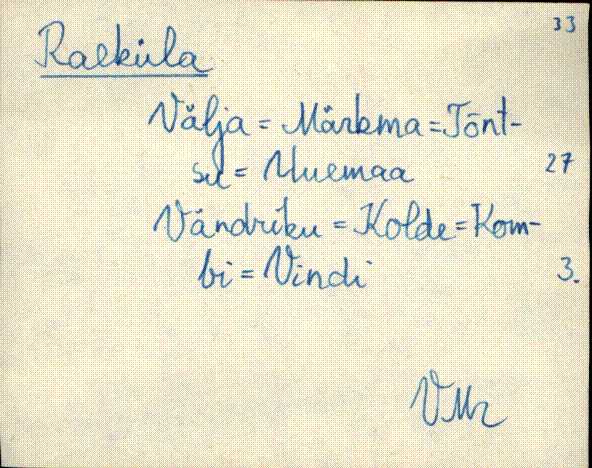 33
Raeküla
Välja = Märkma = Tõnt-
su = Uuemaa 27
Vändriku = Kolde = Kom-
bi = Vindi 3.
VMr